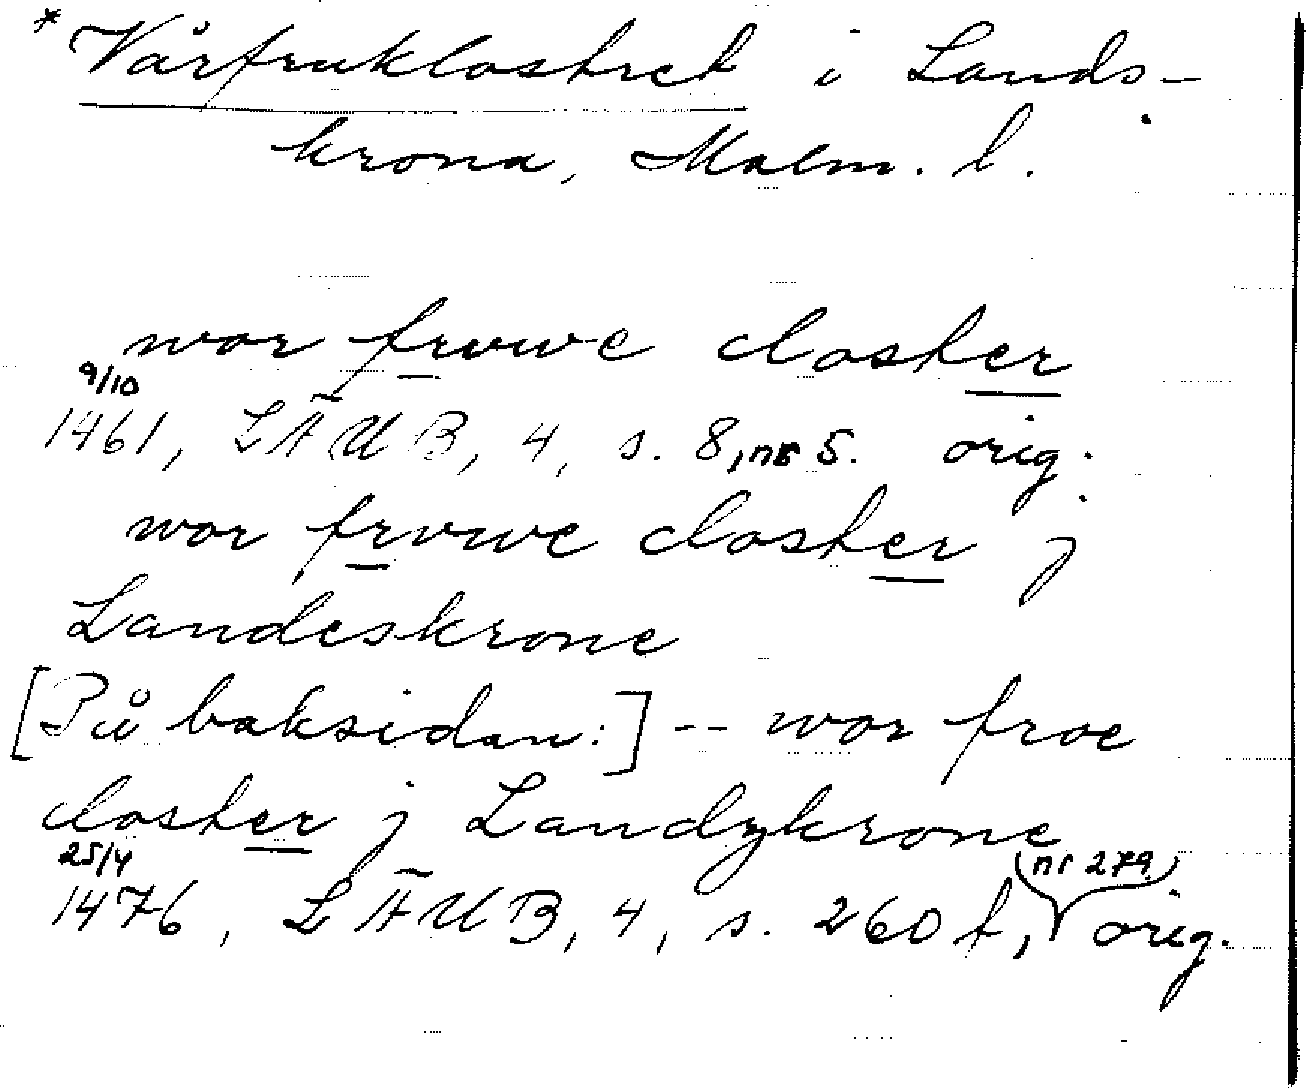 *Vårfruklostret i Lands-
krona, Malm. l.
wor frvwe closter
9/10
1461, LÄUB, 4, s. 8, nr 5. orig.
wor frvwe closter j
Landeskrone
[På baksidan:] -- wor froe
closter j Landzkrone
25/4
1476, LÄUB, 4, s. 260 f, (nr 279) orig.